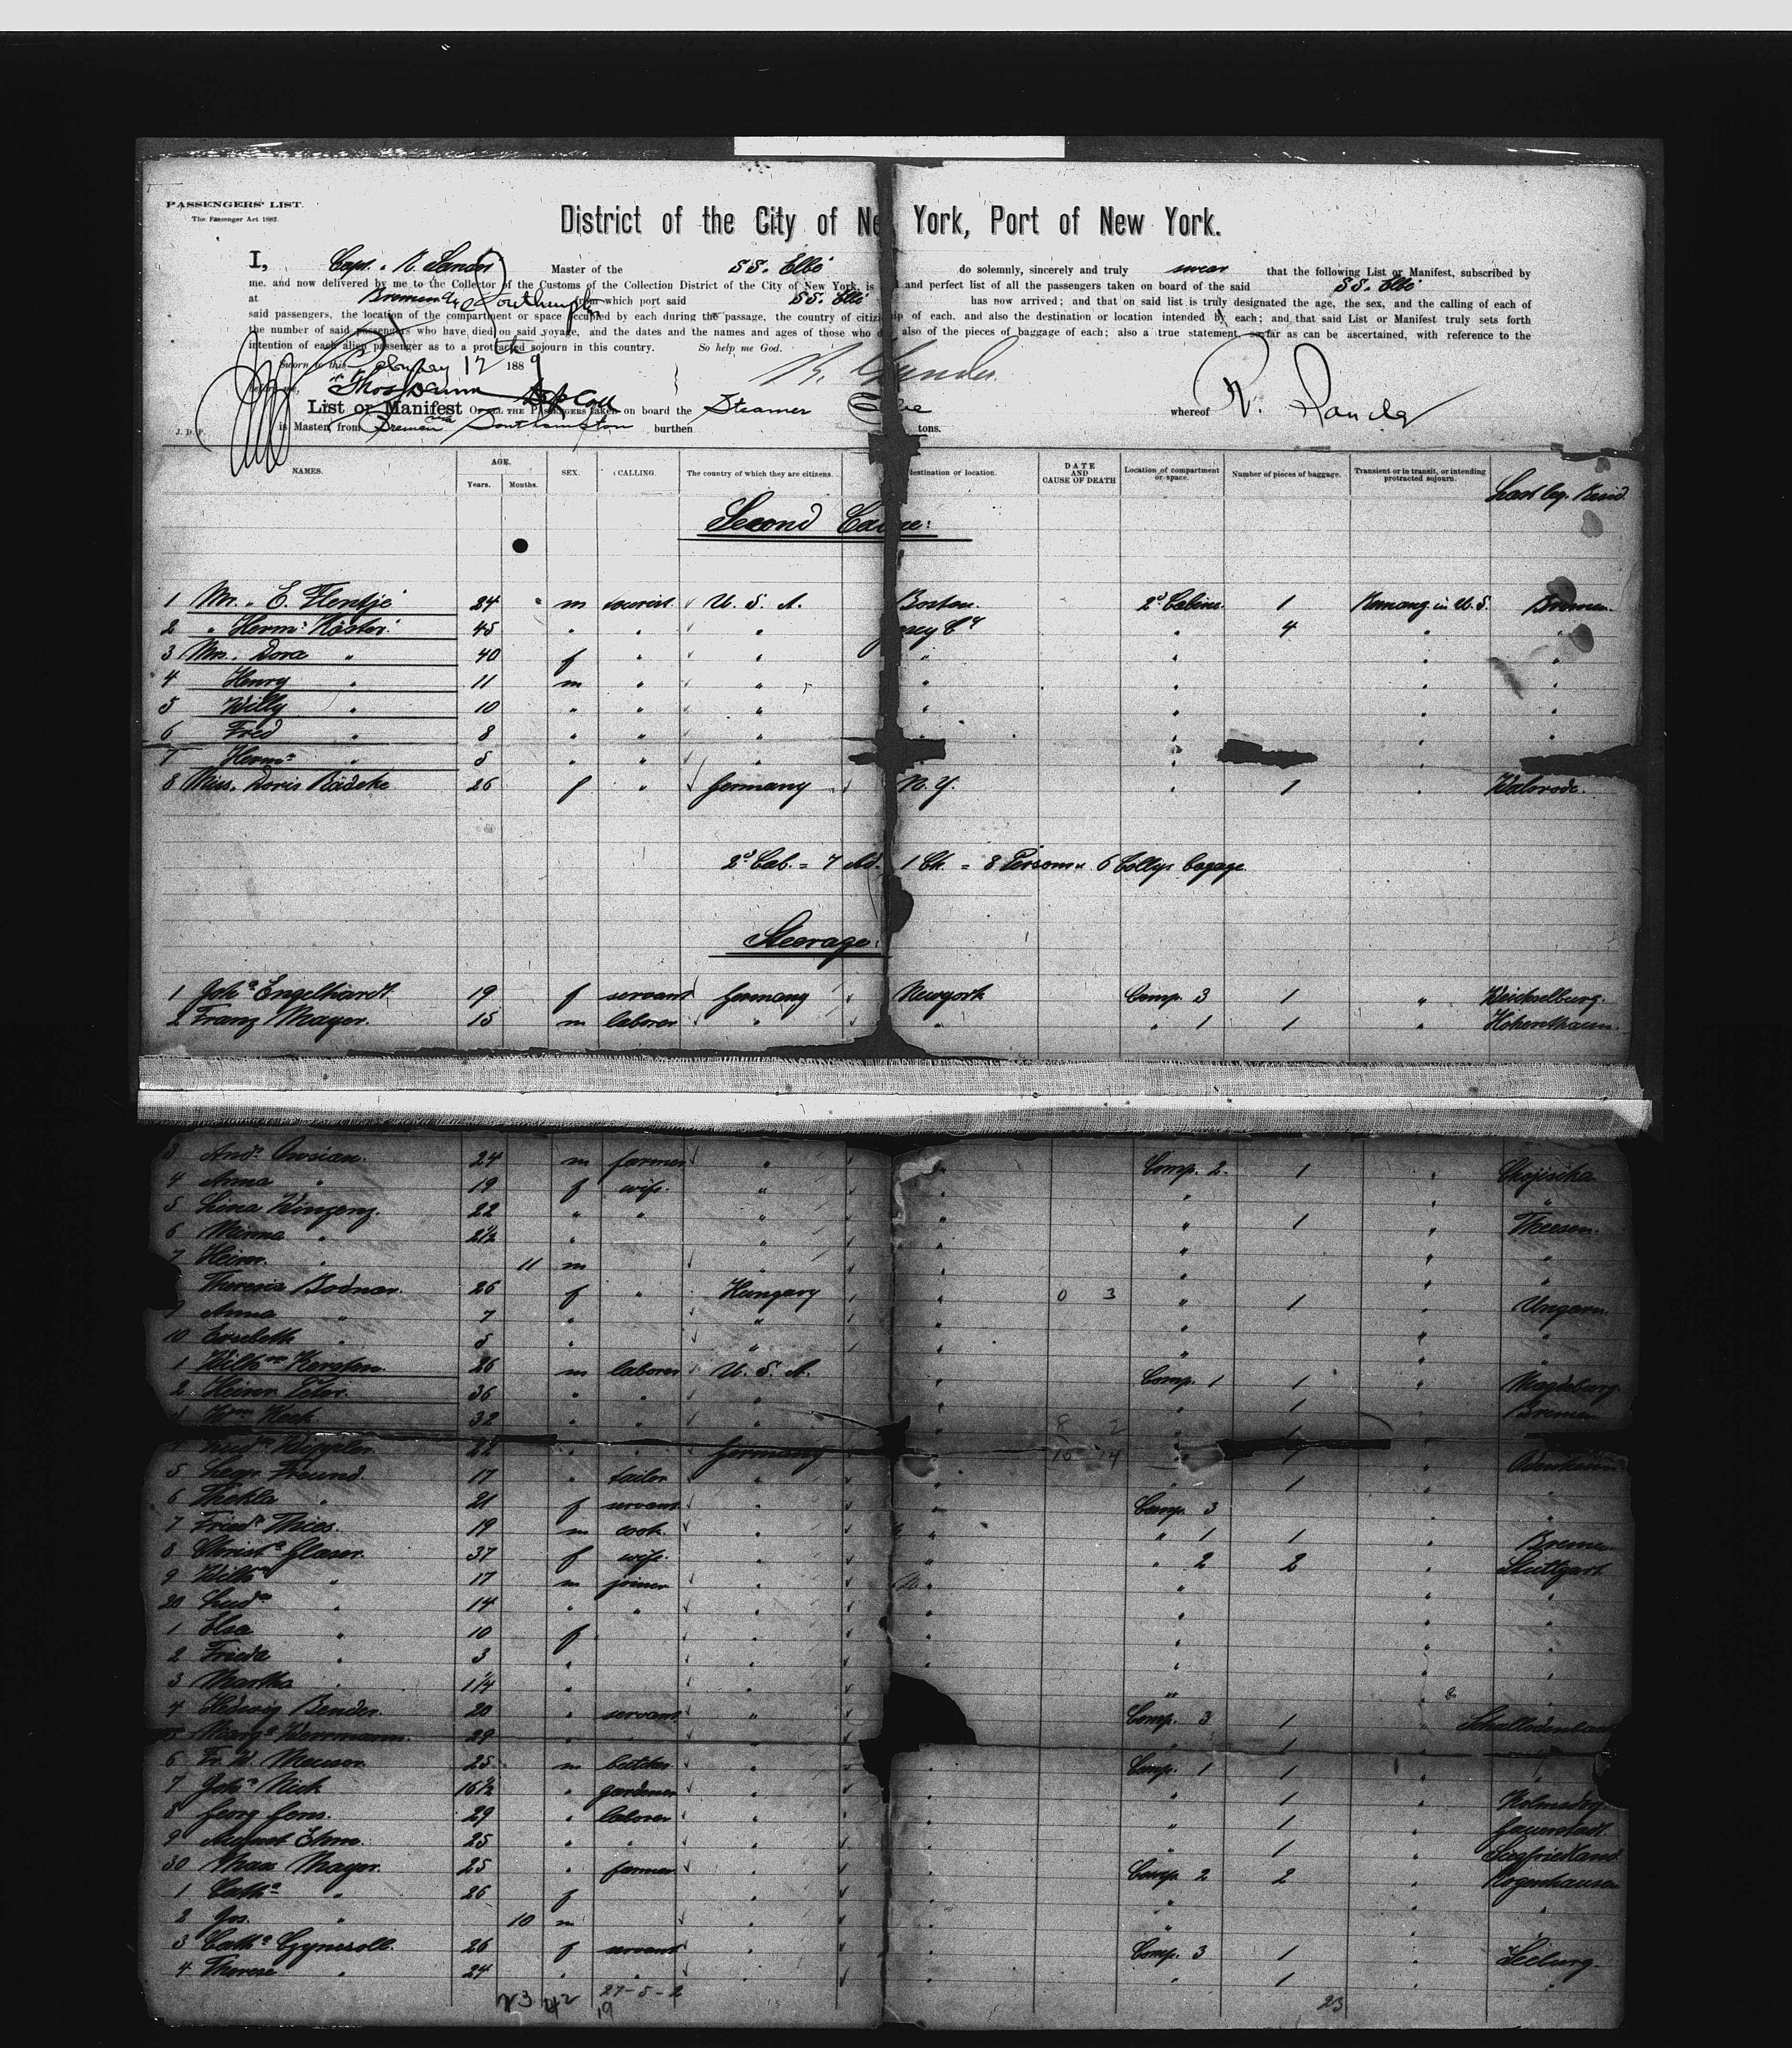 PASSENGERS' LIST.
The Passenger Act 1882.
District of the City of Ne York, Port of New York.
I, Capt. R. Sander Master of the SS. Elbe do solemnly, sincerely and truly swear that the following List or Manifest, subscribed by
me, and now delivered by me to the Collector of the Customs of the Collection District of the City of New York, is and perfect list of all the passengers taken on board of the said SS. Elbe
at Bremen & Southampton from which port said SS. Elbe has now arrived; and that on said list is truly designated the age, the sex, and the calling of each of
said passengers, the location of the compartment or space occupied by each during the passage, the country of citiz ip of each, and also the destination or location intended by each; and that said List or Manifest truly sets forth
the number of said passengers who have died on said voyage, and the dates and the names and ages of those who d also of the pieces of baggage of each; also a true statement, so far as can be ascertained, with reference to the
intention of each alien passenger as to a protracted sojourn in this country. So help me God.
Sworn to this February 12th 1889 R. Sander
before me,
List or Manifest OF ALL THE PASSENGERS taken on board the Steamer Elbe whereof R. Sander
J. D. P. is Master, from Bremen Southampton burthen tons.
NAMES. AGE. Years. Months. SEX. CALLING. The country of which they are citizens. destination or location. DATE AND CAUSE OF DEATH Location of compartment or space. Number of pieces of baggage. Transient or in transit, or intending protracted sojourn.
Last leg. Resid.
Second Ca e:
1 Mr. E. Flentje 24 m tourist U. S. A. Boston. 2d Cabine. 1 Remang. in U. S. Bremen.
2 " Herm: Köster. 45 " " " rsey Cy " 4 " "
3 Mrs. Dora " 40 f " " " " " "
4 Henry " 11 m " " " " " "
5 Willy " 10 " " " " " " "
6 Fred " 8 " " " " " "
7 Herm: " 5 " " " " "
8 Miss. Doris Bädeke 26 f " Germany N. Y. " 1 " Walsrode.
2d Cab. = 7 Ad. 1 Ch. = 8 Persons. 6 Collys bagage.
Steerage:
1 Joha Engelhardt 19 f servant Germany Newyork Comp. 3 1 "
2 Franz Mayer. 15 m laborer " " " 1 1 "
3 24 m farmer " " Comp. 2. 1 "
4 Anna " 19 f wife. " " " " "
5 Lina 22 " " " " " 1 " Theesen.
6 Minna " 2½ " " " " " "
7 Heinr. " 11 m " " " " "
Theresia Bodnar. 26 f " Hungary " 0 3 " 1 " Ungarn.
9 Anna " 7 " " " " " "
10 Ersebeth " 5 " " " " " "
1 Wilhm Kersten. 26 m laborer U. S. A. " Comp. 1 1 " Magdeburg.
2 Heinr. Peter. 36 " " " " " 1 " Bremen
32 " " " " 8 2 " 1
4 Ludw. Wippler. 22 " " Germany " 16 4 " 1 "
5 Freund. 17 " tailor " " " 1 " "
6 Thekla " 21 f servant " " Comp. 3 " "
7 Friedr. Thies. 19 m cook " " " 1 1 " Bremen
8 Christa Glaser. 37 f wife. " " " 2 2 " Stuttgart
9 Wilhm " 17 m joiner " " " " "
20 Ludw " 14 " " " " " " "
1 Elsa " 10 f " " " " "
2 Frieda " 3 " " " " " "
3 Martha " 1¼ " " " "
4 Hedwig Bender. 20 " servant " Comp. 3 1 "
29 " " " 1
6 Fr. W. 25 m butcher " " Comp. 1 1 " "
7 Joha Nick 16½ " gardener " " " 1 "
8 Georg 29 " laborer " " " 1 " Gauerstadt.
9 August Ehm. 25 " " " " " 1 "
30 Max Mayer. 25 " farmer " " Comp. 2 2 "
1 Catha " 26 f " " " " "
2 Jos. " 10 m " " " " "
3 Catha 26 f servant " " Comp. 3 1 " Seeburg.
4 Therese " 24 " " " " " 1 " "
27-5-2
19
23